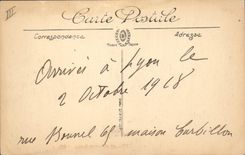 III
Carte Postale
Correspondance
Adresse
Arrivés à Lyon le
2 Octobre 1918
rue 69 maison